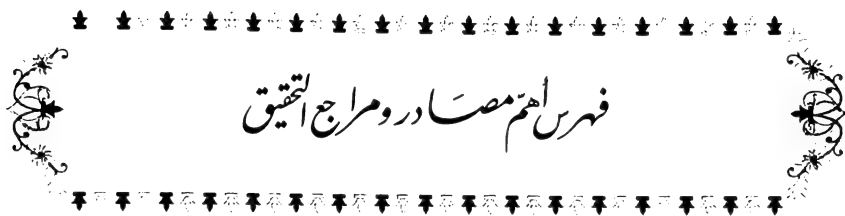 فهرس أهمّ مصَادر ومراجع التحقيق